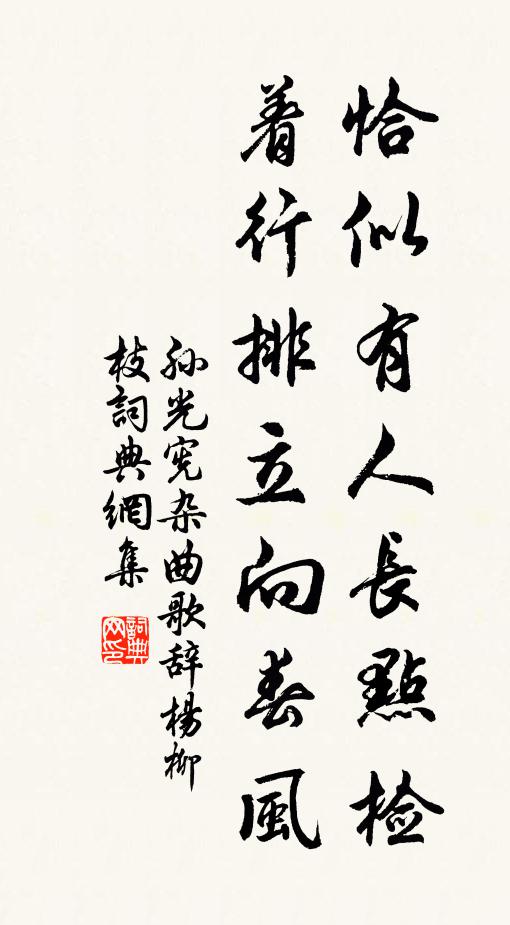 恰似有人長點檢
着行排立向春風
孙光宪杂曲歌辞楊柳
枝詞典網集
詞典网印